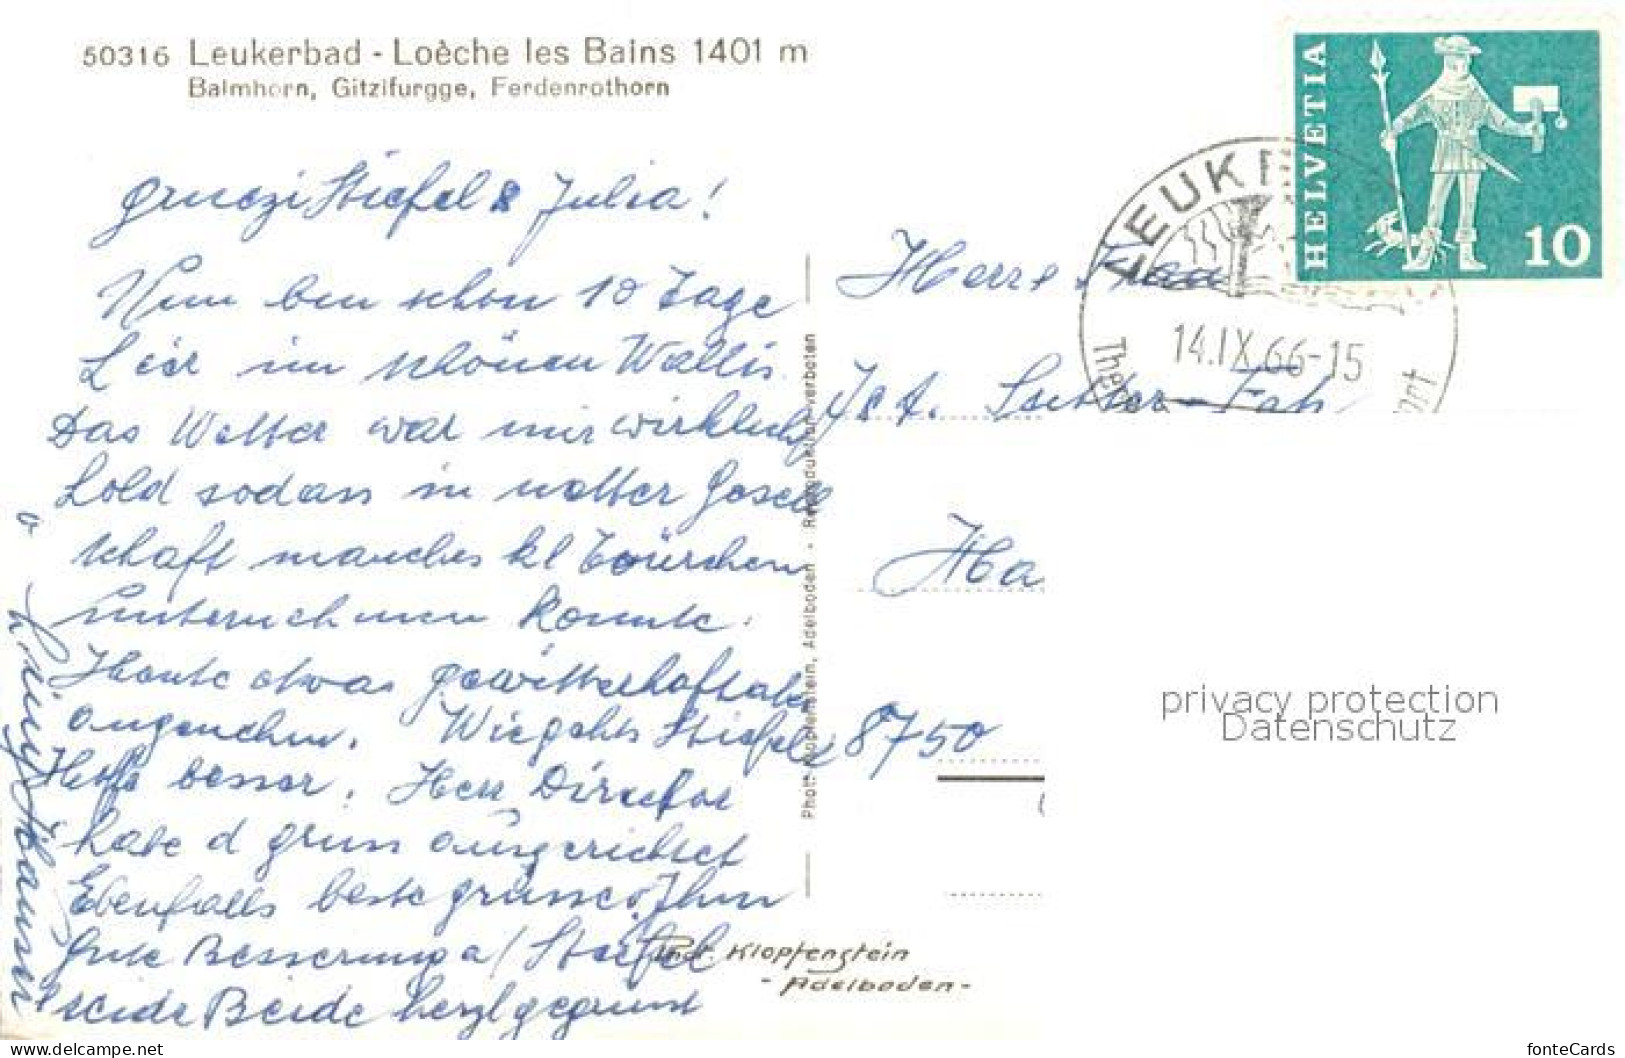 50316 Leukerbad - Loèche les Bains 1401 m
Balmhorn, Gitzifurgge, Ferdenrothorn
gruezi Stiefel & Julia!
Nun ben schon 10 Tage
im schönen Wallis.
Das Wetter war mir wirklich
hold sodass in netter Gesell
schaft manches kl Tourchen
unternehmen konnte.
Heute etwas gewitterhaft aber
angenehm. Wie gehts Stiefel
besser. Herr Director
habe d grüss ausgerichtet
Ebenfalls beste grüsse. Ihm
gute Besserung / Stiefel
seid Beide herzl gegrüsst
Phot. Klopfenstein, Adelboden - Reproduktion verboten
Phot. Klopfenstein
- Adelboden -
HELVETIA
10
LEUK
14.IX.66-15
Ther
ort
Herr & Frau
Jct.
Ha
8750
privacy protection
Datenschutz
https://www.delcampe.net
fonteCards